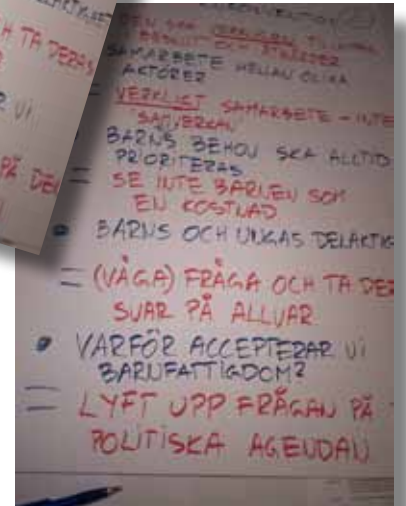 DEN SOM VERKLIGEN
BESLUT OCH ÅTGÄRDER
SAMARBETE MELLAN OLIKA
AKTÖRER
= VERKLIGT SAMARBETE - INTE
"SAMVERKAN"
BARNS BEHOV SKA ALLTID
PRIORITERAS
= SE INTE BARNEN SOM
EN KOSTNAD
• BARNS OCH UNGAS DELAKTIG
= (VÅGA) FRÅGA OCH TA DER
SVAR PÅ ALLVAR
• VARFÖR ACCEPTERAR VI
BARNFATTIGDOM?
= LYFT UPP FRÅGAN PÅ
POLITISKA AGENDAN
H TA DERAS
R VI
PÅ DEN